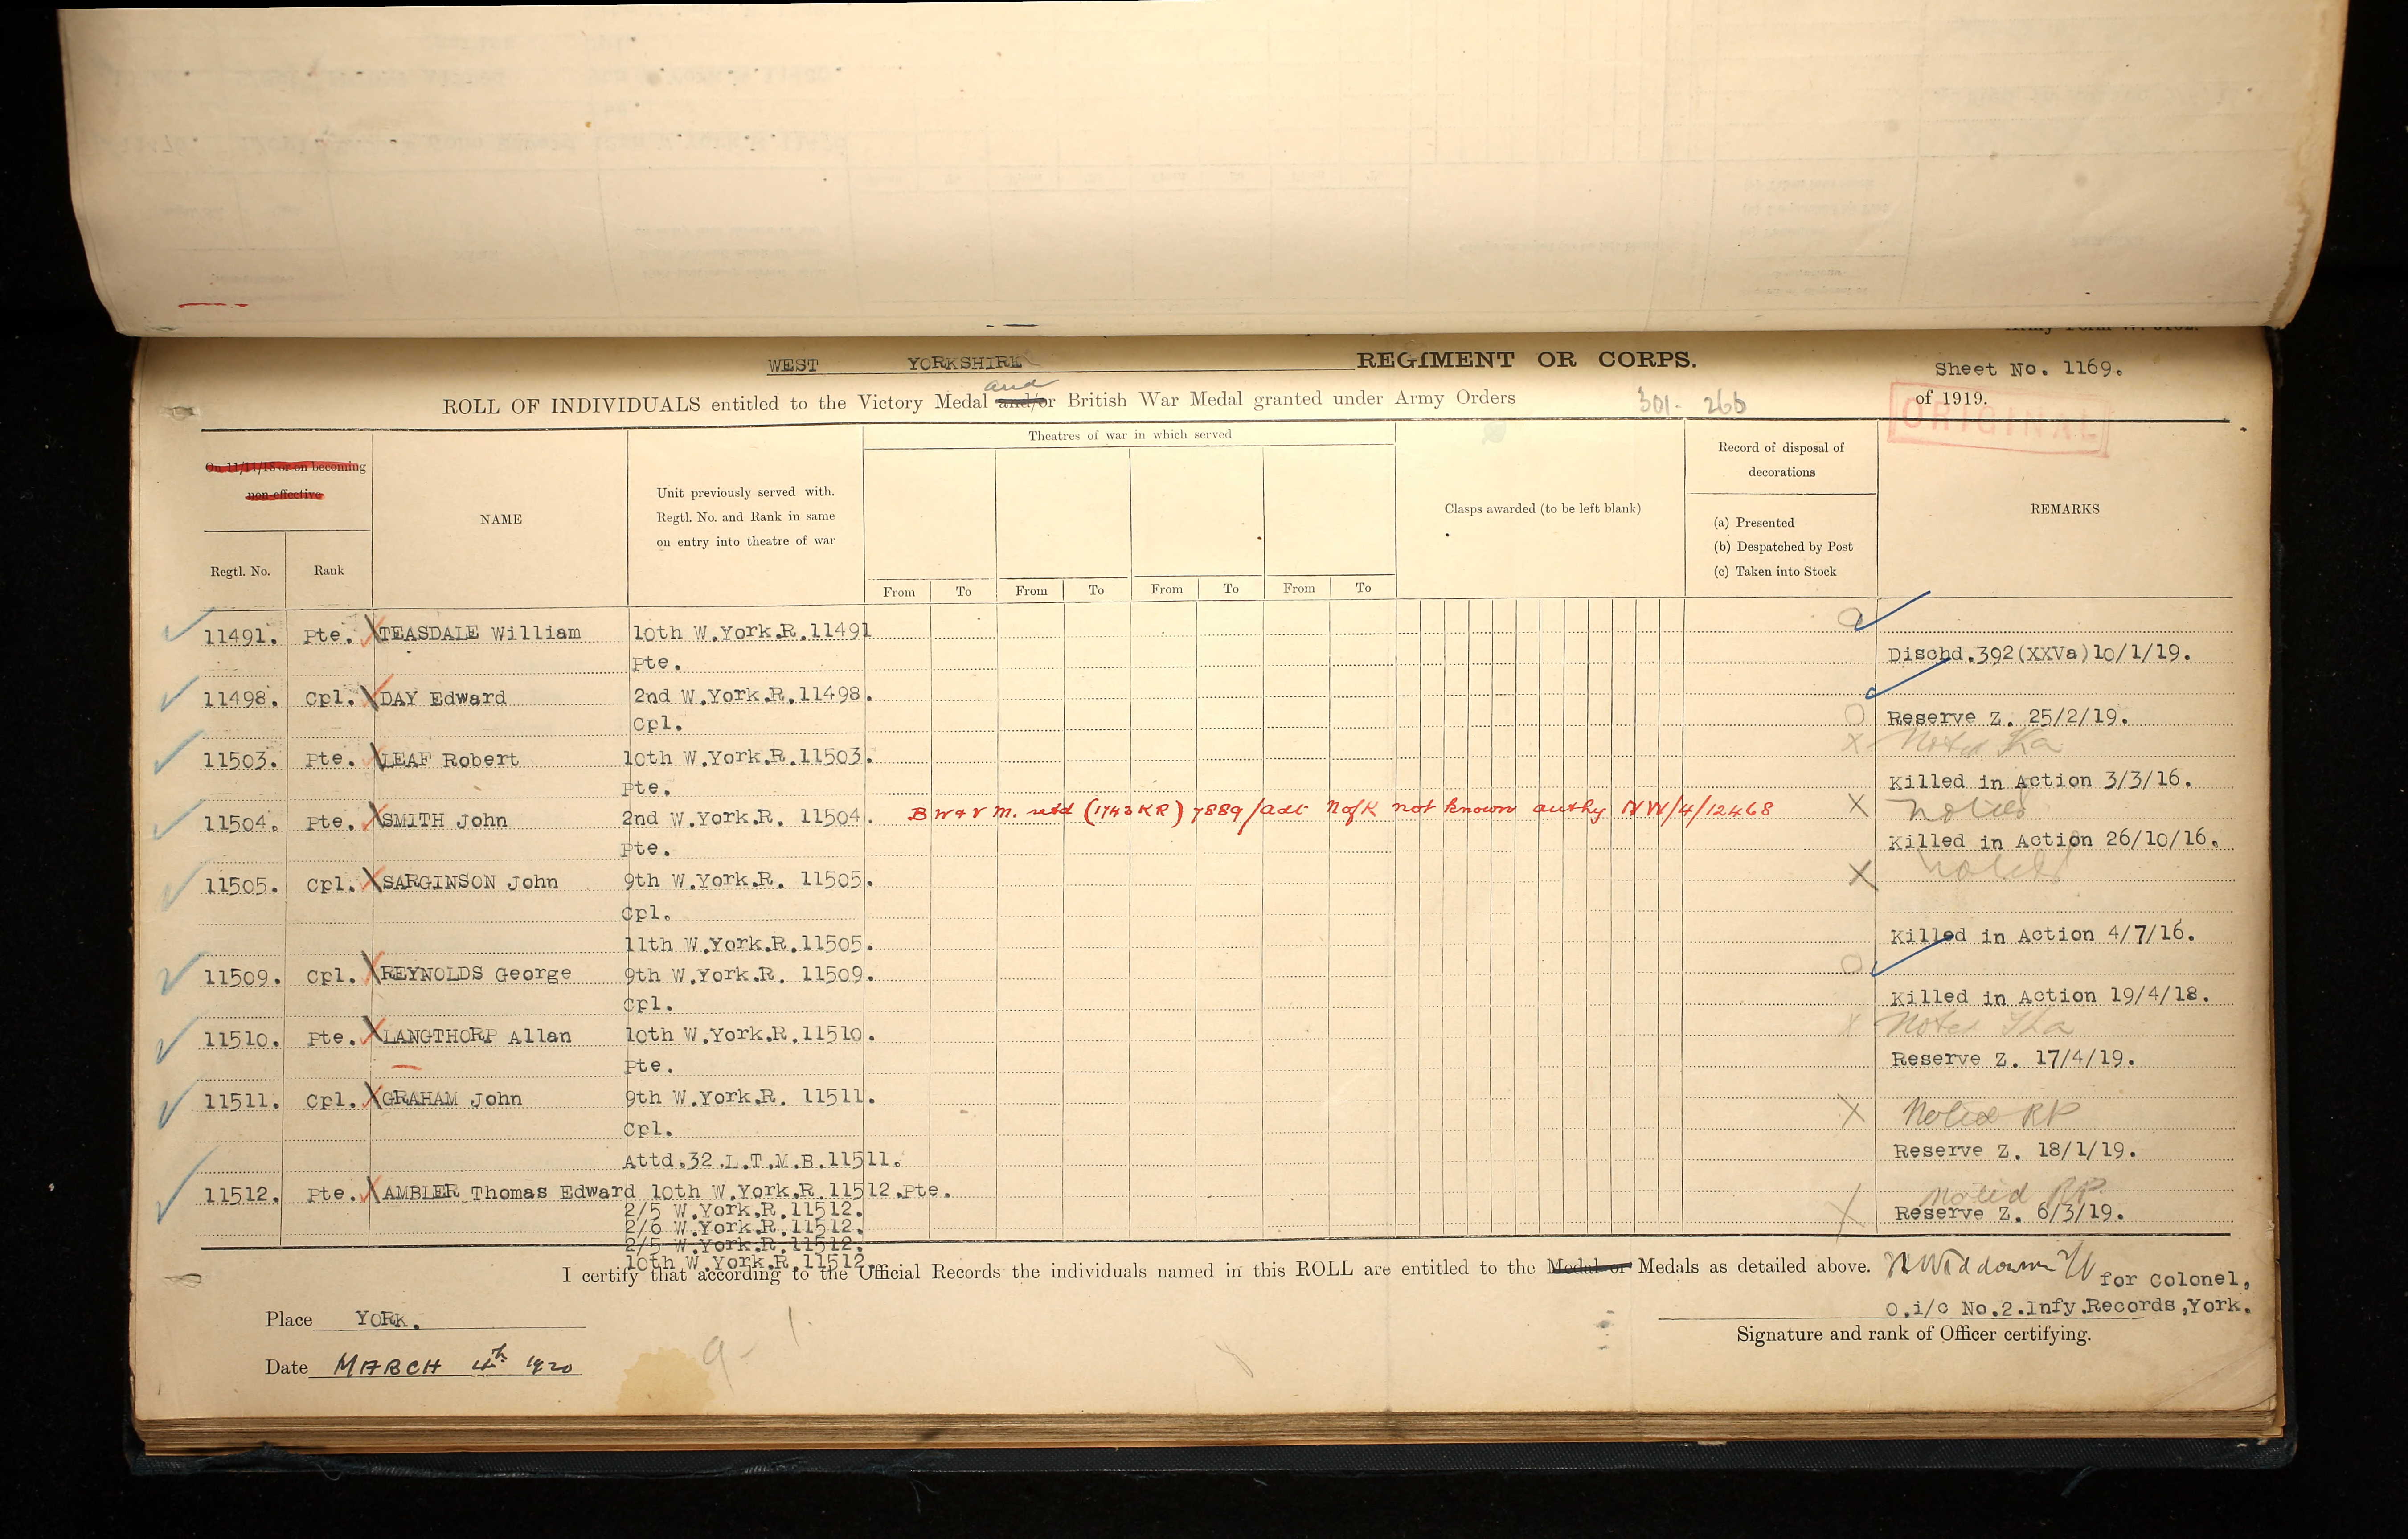 WEST YORKSHIRE REGIMENT OR CORPS.
Sheet No. 1169.
and
ROLL OF INDIVIDUALS entitled to the Victory Medal and/or British War Medal granted under Army Orders 301. 266 of 1919.
ORIGINAL
On 11/11/18 or on becoming
non-effective
Regtl. No.
Rank
NAME
Unit previously served with.
Regtl. No. and Rank in same
on entry into theatre of war
Theatres of war in which served
From To From To From To From To
Clasps awarded (to be left blank)
Record of disposal of
decorations
(a) Presented
(b) Despatched by Post
(c) Taken into Stock
REMARKS
11491. Pte. TEASDALE William 10th W.York.R.11491
Pte. Dischd.392(XXVa)10/1/19.
11498. Cpl. DAY Edward 2nd W.York.R.11498.
Cpl. Reserve Z. 25/2/19.
Noted
11503. Pte. LEAF Robert 10th W.York.R.11503.
Pte. Killed in Action 3/3/16.
11504. Pte. SMITH John 2nd W.York.R. 11504. B W & V M. retd (1743 KR) 7889/adt N of K not known authy NW/4/12468 Noted
Pte. Killed in Action 26/10/16.
Noted
11505. Cpl. SARGINSON John 9th W.York.R. 11505.
Cpl.
11th W.York.R.11505. Killed in Action 4/7/16.
11509. Cpl. REYNOLDS George 9th W.York.R. 11509.
Cpl. Killed in Action 19/4/18.
Noted
11510. Pte. LANGTHORP Allan 10th W.York.R.11510.
Pte. Reserve Z. 17/4/19.
11511. Cpl. GRAHAM John 9th W.York.R. 11511.
Noted RP
Cpl.
Attd.32.L.T.M.B.11511. Reserve Z. 18/1/19.
11512. Pte. AMBLER Thomas Edward 10th W.York.R.11512.Pte. Noted RP.
2/5 W.York.R.11512. Reserve Z. 6/3/19.
2/6 W.York.R.11512.
2/5 W.York.R.11512.
10th W.York.R.11512.
I certify that according to the Official Records the individuals named in this ROLL are entitled to the Medal or Medals as detailed above.
for Colonel,
O.i/c No.2.Infy.Records,York.
Signature and rank of Officer certifying.
Place YORK.
Date MARCH 4th 1920